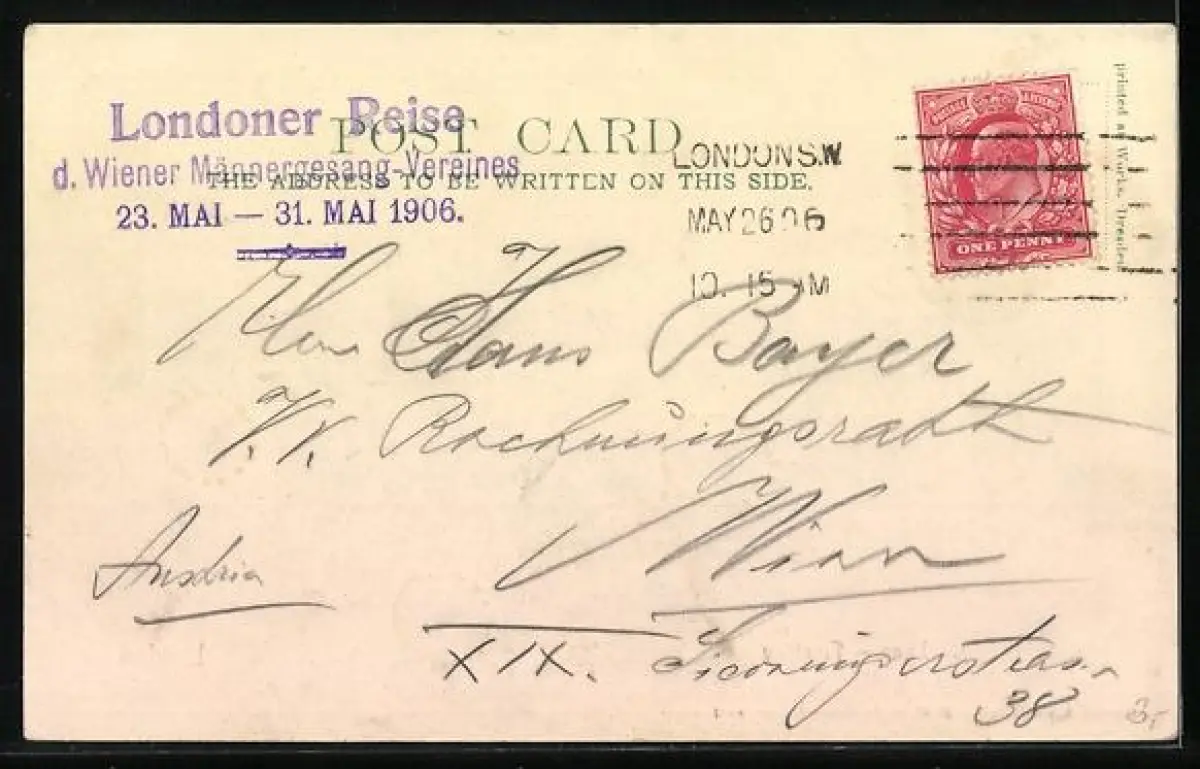 Londoner Reise
d. Wiener Männergesang-Vereines
23. MAI — 31. MAI 1906.
POST CARD
THE ADDRESS TO BE WRITTEN ON THIS SIDE.
LONDON S.W
MAY 26 06
10. 15 AM
POSTAGE & REVENUE
ONE PENNY
printed at Works, Dresden
Herrn Hans Bayer
K.K. Rechnungsrath
Wien
Austria
XIX.
38